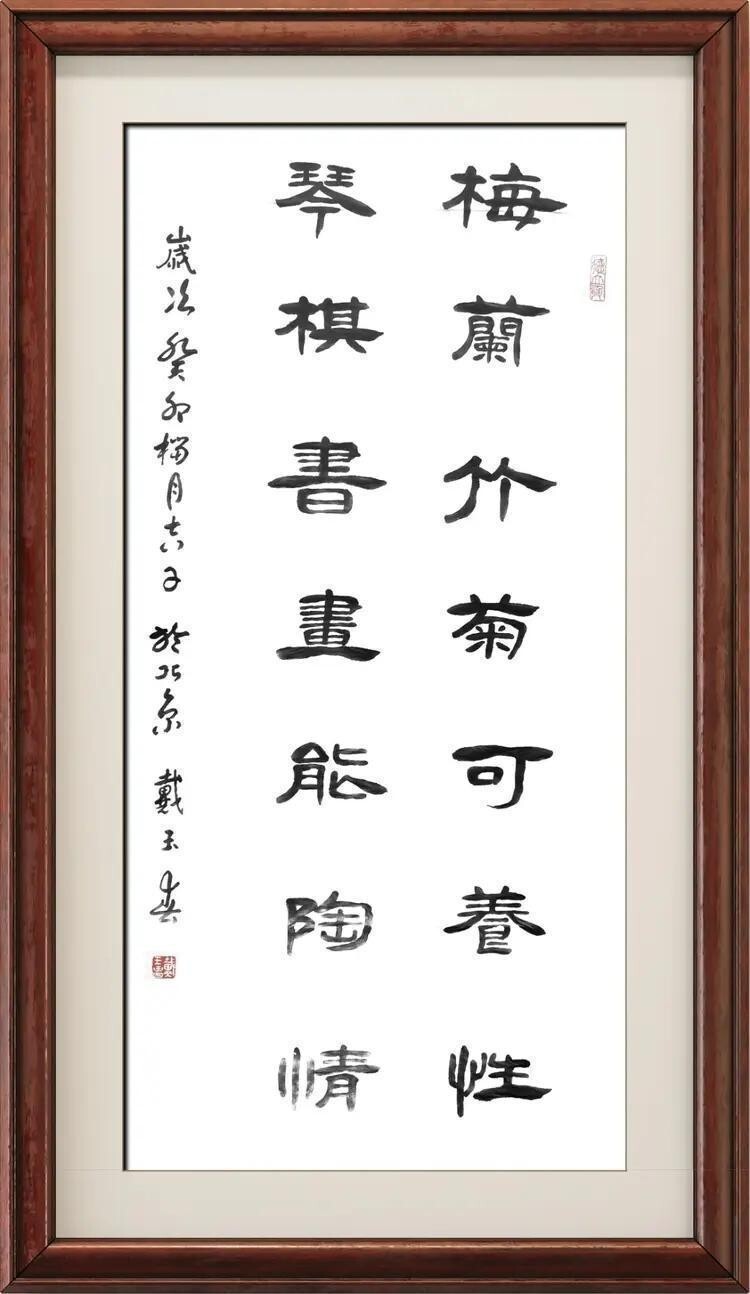 梅蘭竹菊可養性
琴棋書畫能陶情
歲次癸卯榴月吉日於北京戴玉春